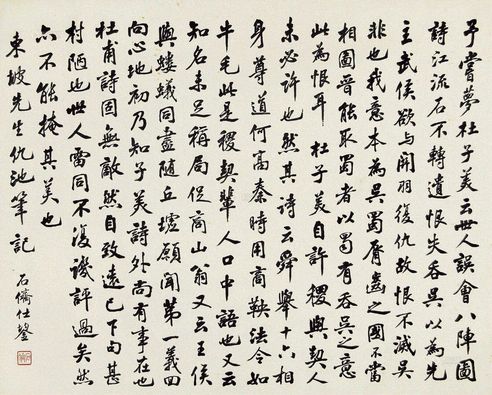 予嘗夢杜子美云世人誤會八陣圖
詩江流石不轉遺恨失吞吳以為先
主武侯欲与關羽復仇故恨不滅吳
非也我意本為吳蜀脣齒之國不當
相圖晉能取蜀者以蜀有吞吳之意
此為恨耳 杜子美自許稷與契人
未必許也然其詩云舜舉十六相
身尊道何高秦時用商鞅法令如
牛毛此是稷契輩人口中語也又云
知名未足稱局促商山翁又云王侯
與螻蟻同盡隨丘墟願聞第一義回
向心地初乃知子美詩外尚有事在也
杜甫詩固無敵然自致遠已下句甚
村陋也世人雷同不復譏評過矣然
亦不能掩其美也
東坡先生仇池筆記 石儕仕